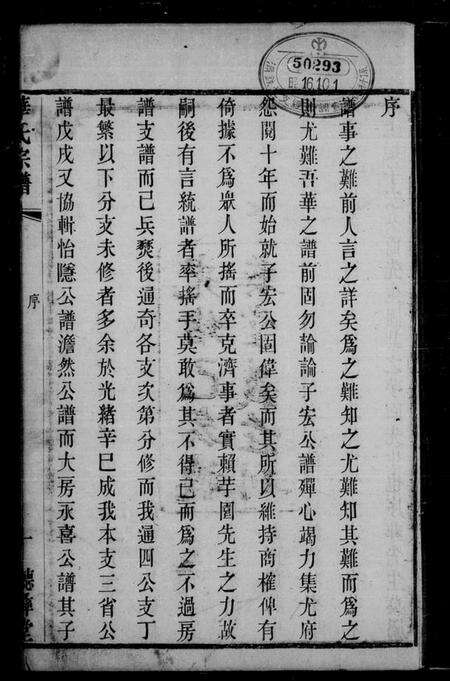 序
譜事之難前人言之詳矣為之難知之尤難知其難而為之
則尤難吾華之譜前固勿論論子宏公譜殫心竭力集尤府
怨閱十年而始就子宏公固偉矣而其所以維持商榷俾有
倚據不為眾人所搖而卒克濟事者實賴芋園先生之力故
嗣後有言統譜者率搖手莫敢為其不得已而為之不過房
譜支譜而已兵燹後通奇各支次第分修而我通四公支丁
最繁以下分支未修者多余於光緒辛巳成我本支三省公
譜戊戌又協輯怡隱公譜澹然公譜而大房永喜公譜其子
華氏宗譜
序
一
聽彝堂
50293
昭
16.10.1